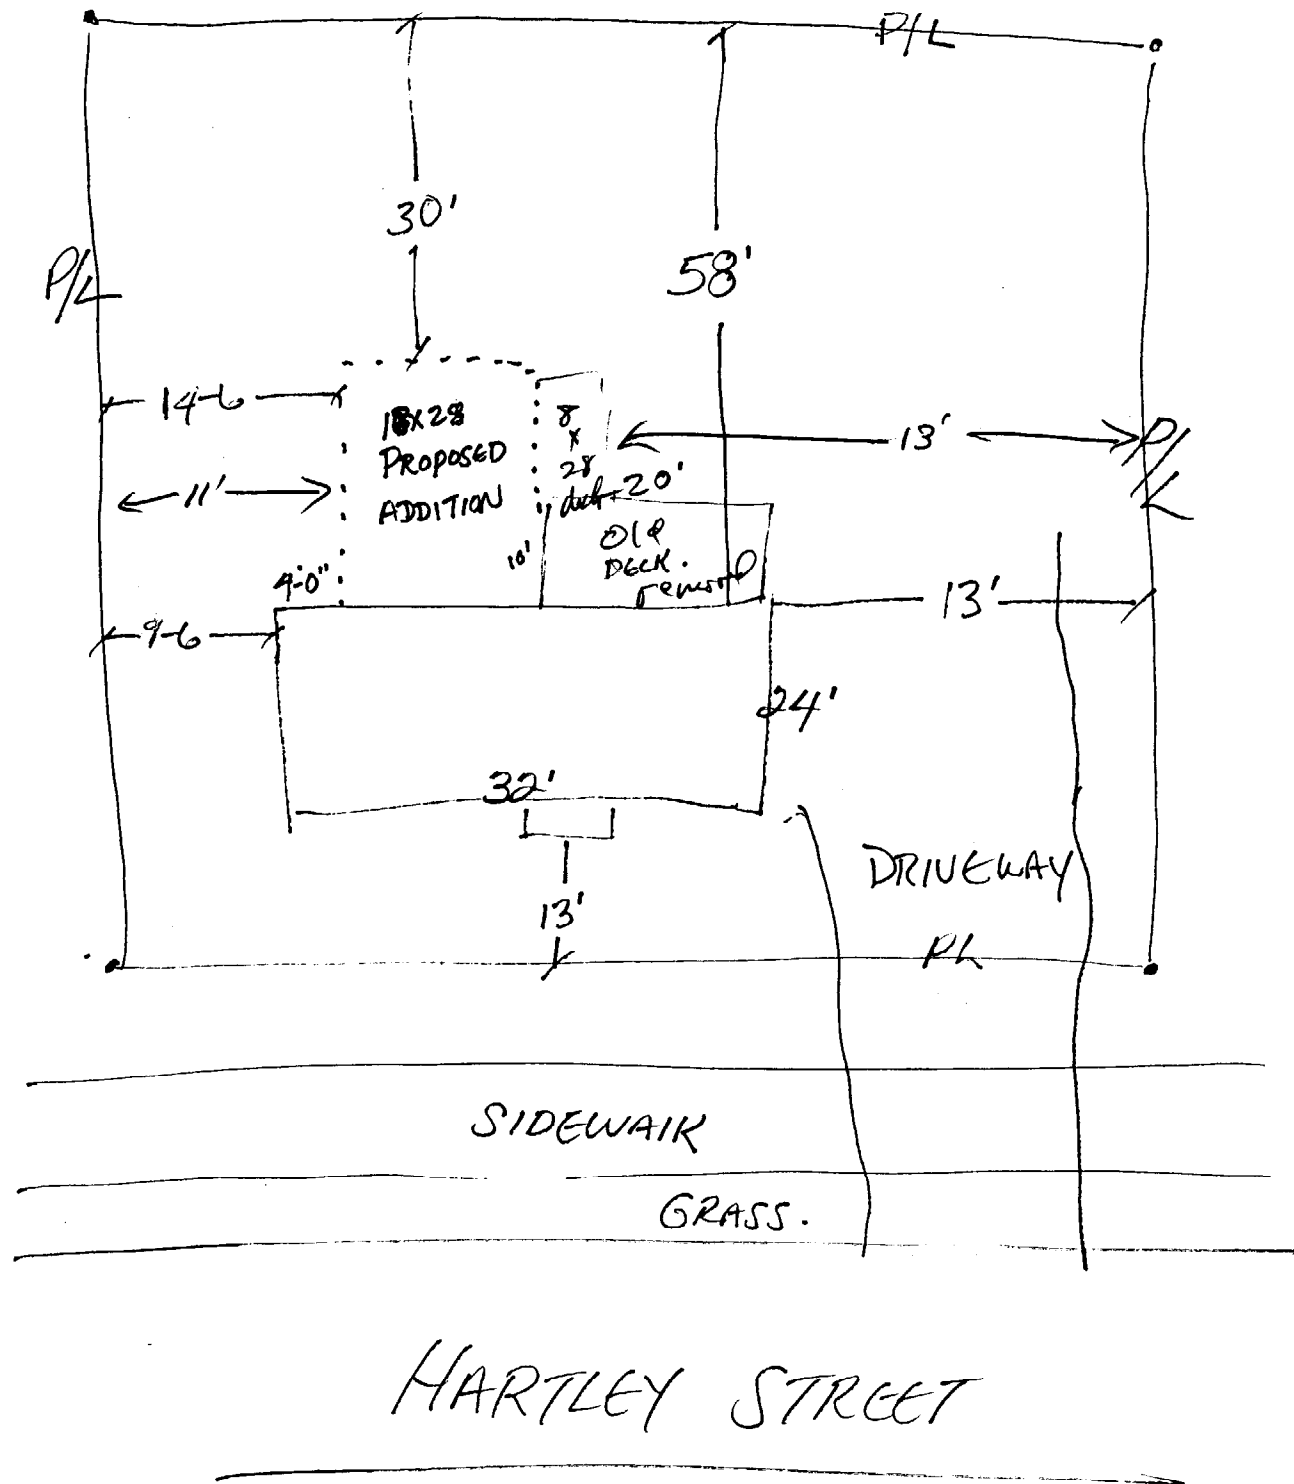 P/L
30'
58'
P/L
14-6
18X28
PROPOSED
ADDITION
8
x
28
deck
13'
P/L
11'
20'
10'
Old
DECK.
removed
4'-0"
13'
9-6
24'
32'
DRIVEWAY
13'
PL
SIDEWALK
GRASS.
HARTLEY STREET